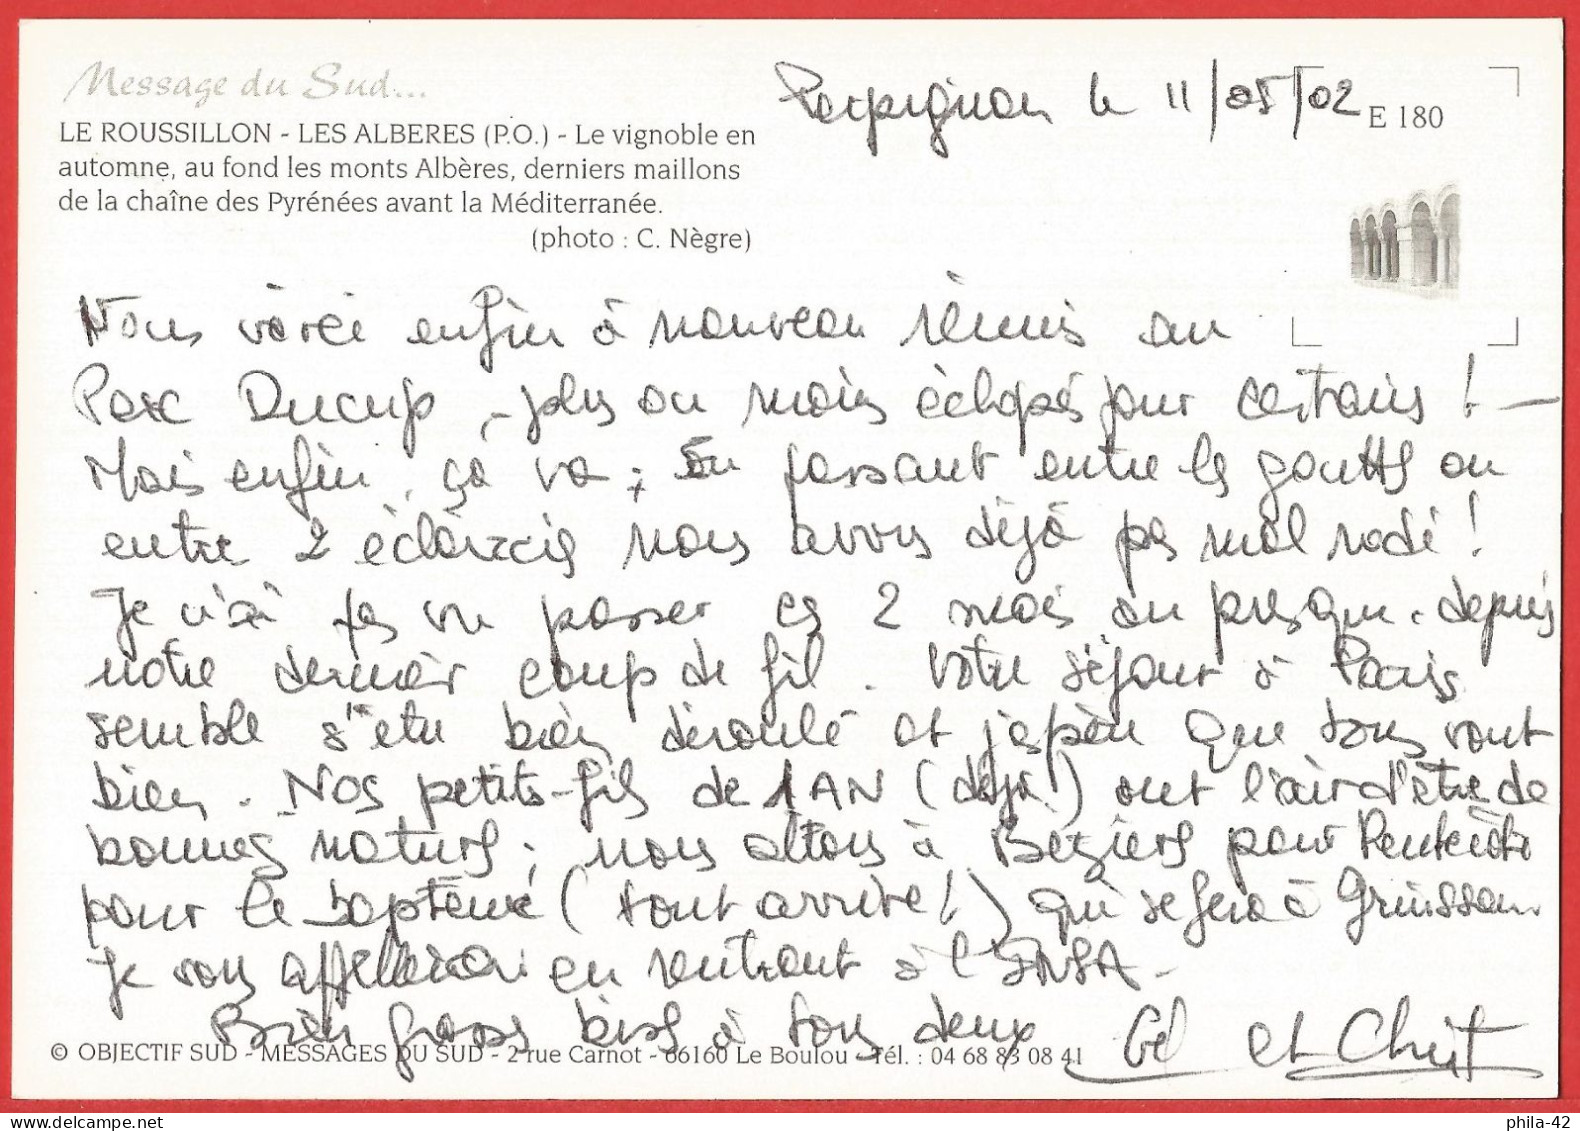 Message du Sud...
LE ROUSSILLON - LES ALBERES (P.O.) - Le vignoble en
automne, au fond les monts Albères, derniers maillons
de la chaîne des Pyrénées avant la Méditerranée.
(photo : C. Nègre)
Perpignan le 11/05/02
E 180
Nous voici enfin à nouveau réunis au
Parc Ducup, plus ou moins éclopés pour certains !
Mais enfin, ça va ; en passant entre les gouttes ou
entre 2 éclaircies nous avons déjà pas mal rodé !
Je n'ai pas vu passer ces 2 mois ou presque. depuis
notre dernier coup de fil. Votre séjour à Paris
semble s'etre bien déroulé et j'espère que tous vont
bien. Nos petits-fils de 1 AN (déjà !) ont l'air d'être de
bonnes natures ; nous allons à Béziers pour Pentecôte
pour le baptême (tout arrive !) qui se fera à Gruissan
Je vous appellerai en rentrant à l'INSA -
Bien grosses bises à tous deux
Gé et Christ
© OBJECTIF SUD - MESSAGES DU SUD - 2 rue Carnot - 66160 Le Boulou - Tél. : 04 68 83 08 41
phila-42